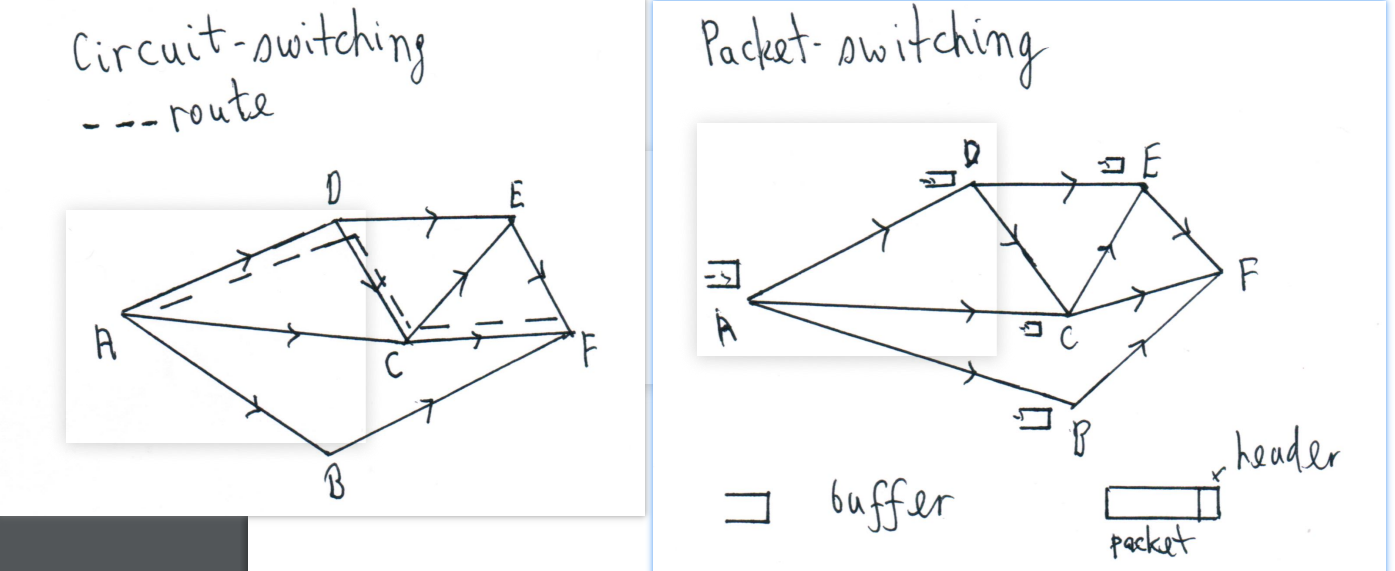 Circuit-switching
--- route
D
E
A
C
F
B
Packet-switching
D
E
A
C
F
B
buffer
header
packet